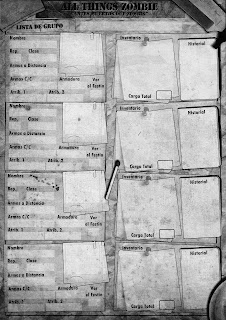 ALL THINGS ZOMBIE
LISTA DE GRUPO
Nombre
Rep. Clase
Armas a Distancia
Armas C/C Armadura Ver al Festín
Atrib. 1 Atrib. 2
Inventario Historial
Carga Total
Nombre
Rep. Clase
Armas a Distancia
Armas C/C Armadura Ver al Festín
Atrib. 1 Atrib. 2
Inventario Historial
Carga Total
Nombre
Rep. Clase
Armas a Distancia
Armas C/C Armadura Ver al Festín
Atrib. 1 Atrib. 2
Inventario Historial
Carga Total
Nombre
Rep. Clase
Armas a Distancia
Armas C/C Armadura Ver al Festín
Atrib. 1 Atrib. 2
Inventario Historial
Carga Total